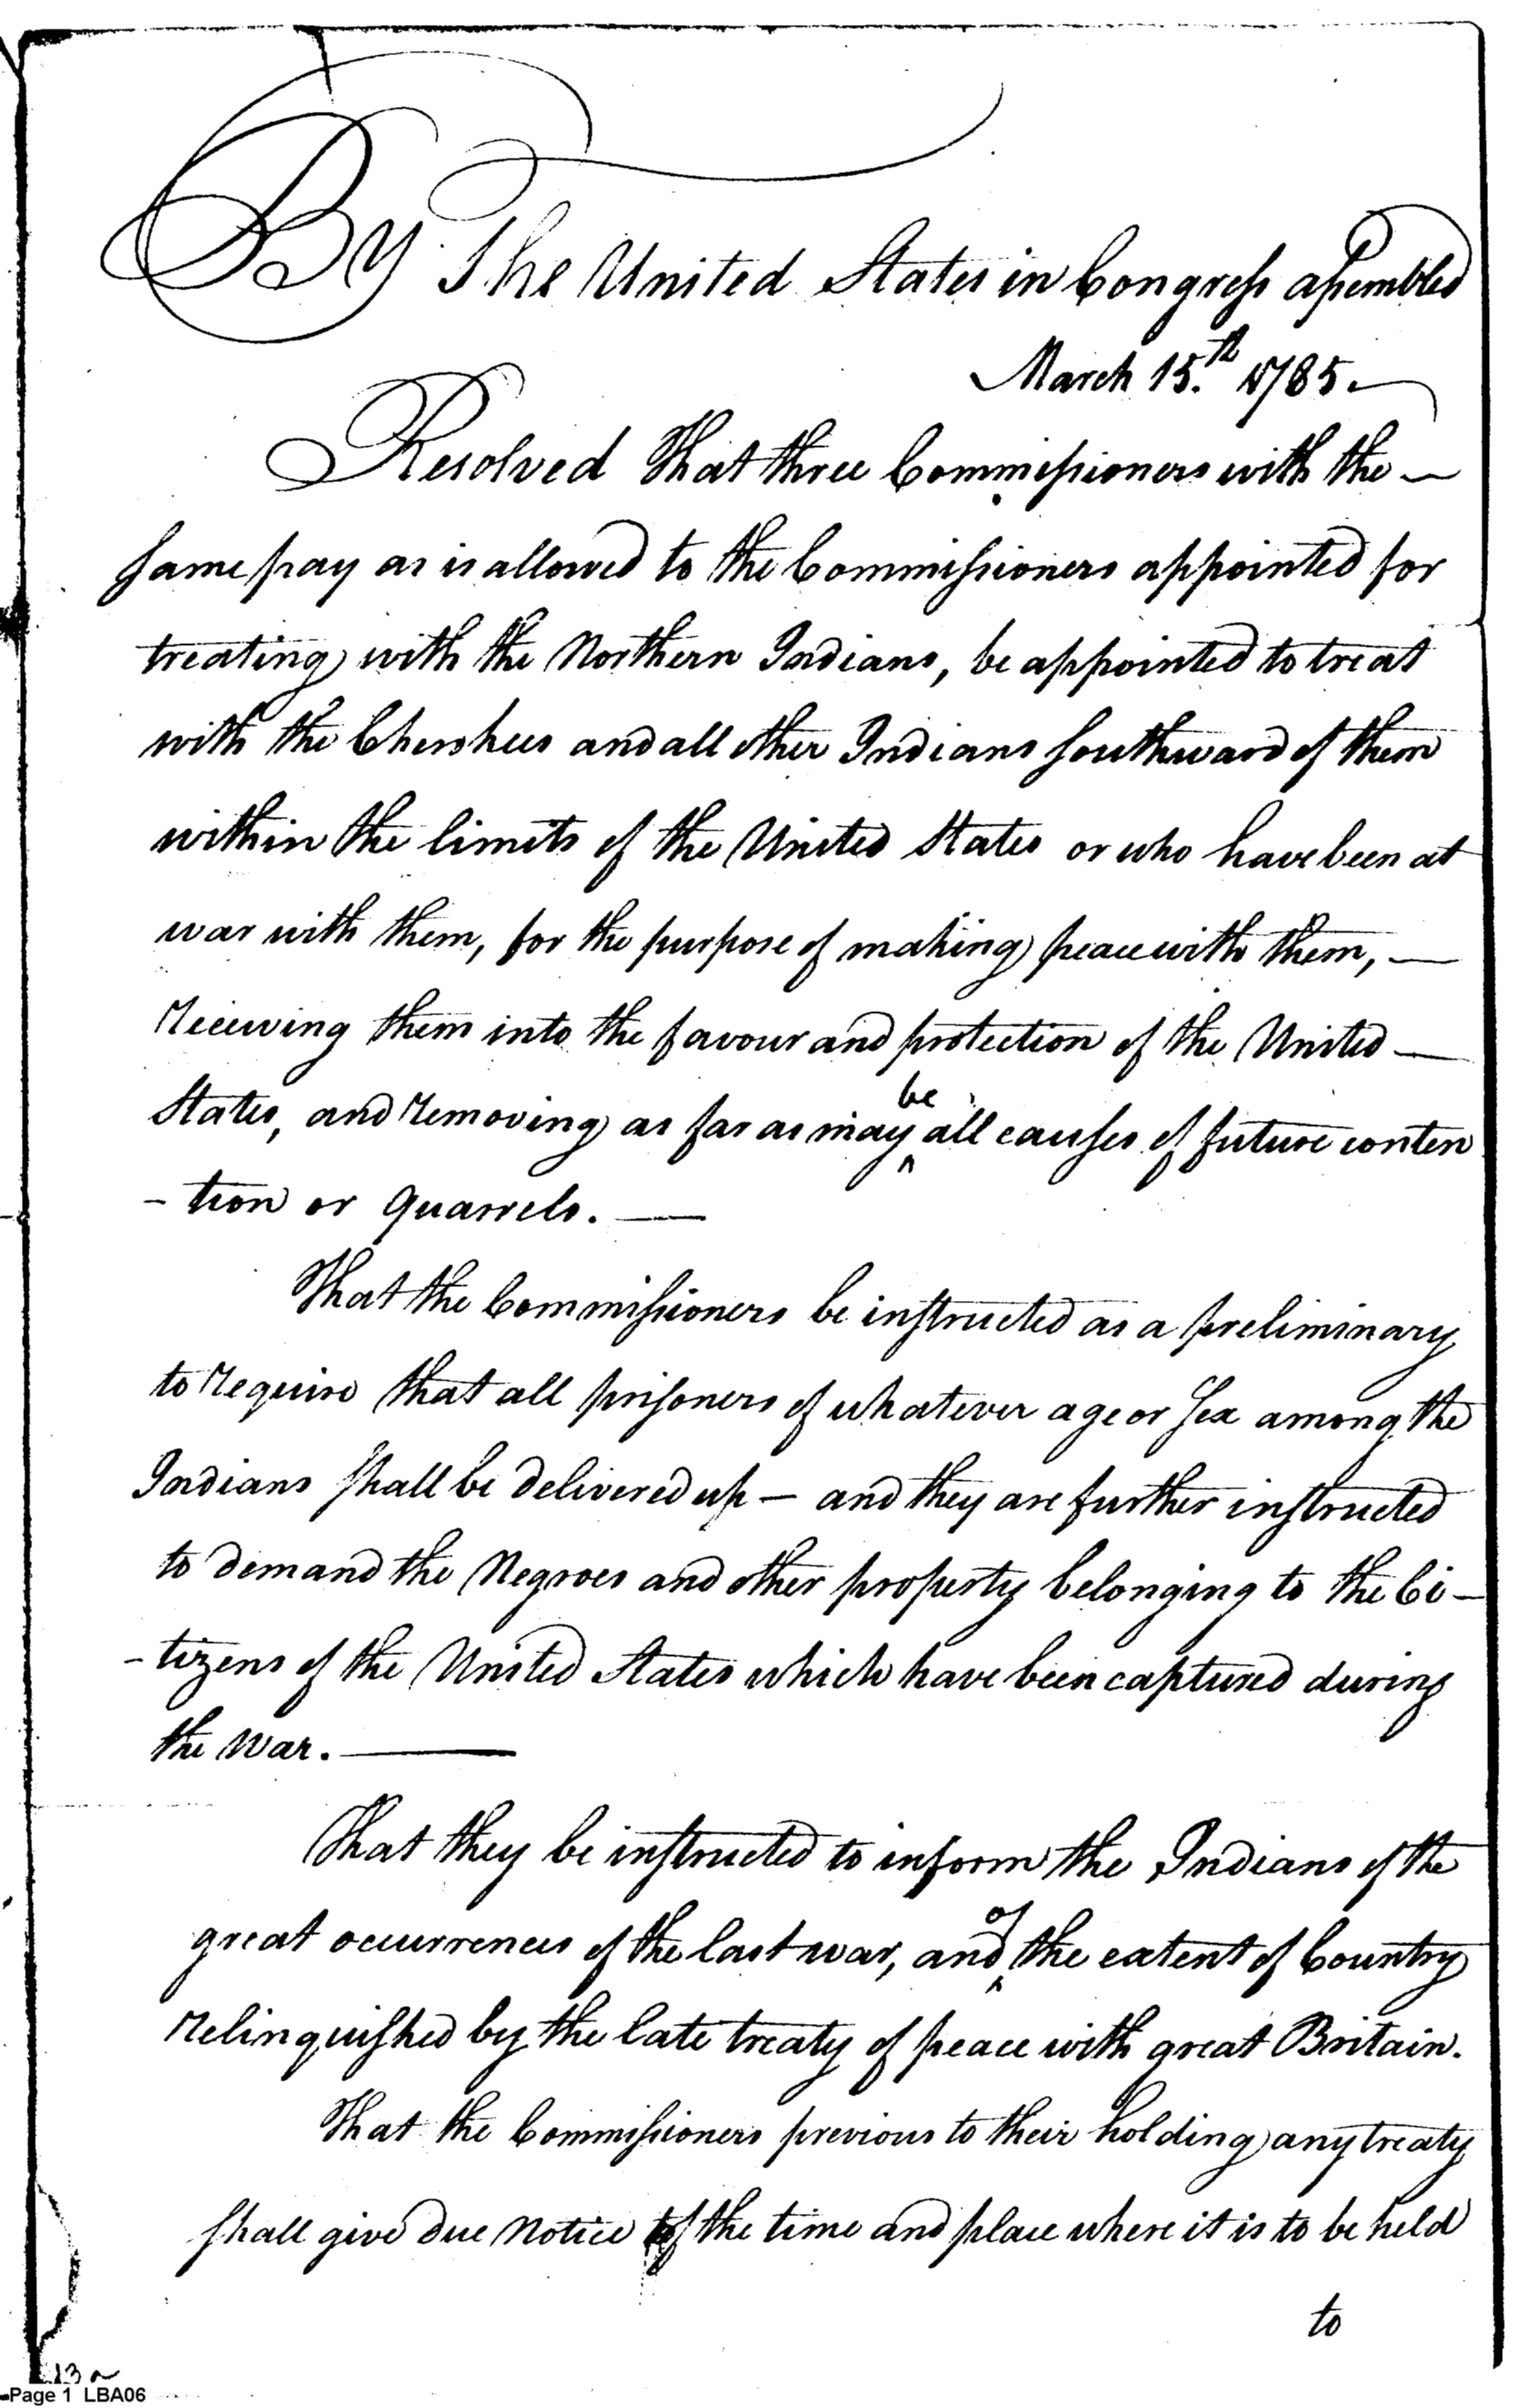 By The United States in Congress assembled
March 15.th 1785.
Resolved That three Commissioners with the —
same pay as is allowed to the Commissioners appointed for
treating with the Northern Indians, be appointed to treat
with the Cherokees and all other Indians southward of them
within the limits of the United States or who have been at
war with them, for the purpose of making peace with them, —
receiving them into the favour and protection of the United —
States, and removing as far as may be all causes of future conten
- tion or Quarrels. —
That the Commissioners be instructed as a preliminary
to require that all prisoners of whatever age or sex among the
Indians shall be delivered up — and they are further instructed
to demand the Negroes and other property belonging to the Ci -
- tizens of the United States which have been captured during
the War. —
That they be instructed to inform the Indians of the
great occurrences of the last war, and of the extent of Country
relinquished by the late treaty of peace with great Britain.
That the Commissioners previous to their holding any treaty
shall give due Notice of the time and place where it is to be held
to
13
Page 1 LBA06